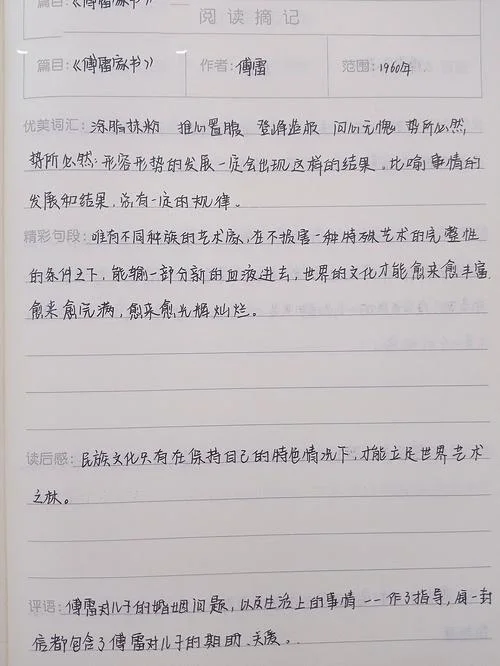 篇目:《傅雷家书》
阅读摘记
篇目:《傅雷家书》 作者: 傅雷 范围: 1960年
优美词汇: 涂脂抹粉 推心置腹 登峰造极 问心无愧 势所必然
势所必然:形容形势的发展一定会出现这样的结果。比喻事情的
发展和结果,总有一定的规律。
精彩句段: 唯有不同种族的艺术家,在不损害一种特殊艺术的完整性
的条件之下,能输一部分新的血液进去,世界的文化才能愈来愈丰富
愈来愈完满,愈来愈光辉灿烂。
读后感: 民族文化只有在保持自己的特色情况下,才能立足世界艺术
之林。
评语: 傅雷对儿子的婚姻问题,以及生活上的事情一一作了指导,每一封
信都包含了傅雷对儿子的期盼、关爱。